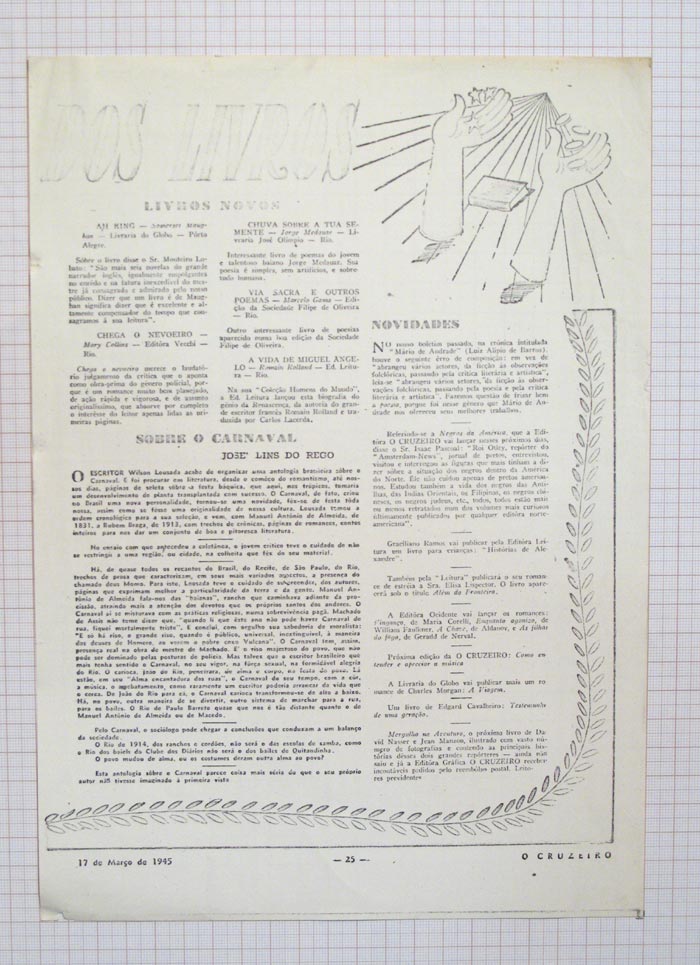 DOS LIVROS
LIVROS NOVOS
AJI KING — Somerset Maug-
ham — Livraria do Globo — Pôrto
Alegre.
Sôbre o livro disse o Sr. Monteiro Lo-
bato: "São mais seis novelas do grande
narrador inglês, igualmente empolgantes
no enrêdo e na fatura inexcedível do mes-
tre já consagrado e admirado pelo nosso
público. Dizer que um livro é de Maug-
han significa dizer que é excelente e al-
tamente compensador do tempo que con-
sagramos à sua leitura".
CHEGA O NEVOEIRO —
Mary Collins — Editôra Vecchi —
Rio.
Chega o nevoeiro merece o laudató-
rio julgamento da crítica que o aponta
como obra-prima do gênero policial, por-
que é um romance muito bem planejado,
de ação rápida e vigorosa, e de assunto
originalíssimo, que absorve por completo
o interêsse do leitor apenas lidas as pri-
meiras páginas.
CHUVA SOBRE A TUA SE-
MENTE — Jorge Medauar — Li-
vraria José Olimpio — Rio.
Interessante livro de poemas do jovem
e talentoso baiano Jorge Medauar. Sua
poesia é simples, sem artifícios, e sobre-
tudo humana.
VIA SACRA E OUTROS
POEMAS — Marcelo Gama — Edi-
ção da Sociedade Filipe de Oliveira
— Rio.
Outro interessante livro de poesias
aparecido numa boa edição da Sociedade
Filipe de Oliveira.
A VIDA DE MIGUEL ANGE-
LO — Romain Rolland — Ed. Leitu-
ra — Rio.
Na sua "Coleção Homens do Mundo",
a Ed. Leitura lançou esta biografia do
gênio da Renascença, da autoria do gran-
de escritor francês Romain Rolland e tra-
duzida por Carlos Lacerda.
SOBRE O CARNAVAL
JOSE' LINS DO REGO
O ESCRITOR Wilson Lousada acaba de organizar uma antologia brasileira sôbre o
Carnaval. E foi procurar em literatura, desde o comêço do romantismo, até nos-
sos dias, páginas de seleta sôbre a festa báquica, que aqui, nos trópicos, tomaria
um desenvolvimento de planta transplantada com sucesso. O Carnaval, de fato, criou
no Brasil uma nova personalidade, tornou-se uma novidade, fêz-se de festa tôda
nossa, assim como se fôsse uma originalidade de nossa cultura. Lousada tomou a
ordem cronológica para a sua seleção, e vem, com Manuel Antônio de Almeida, de
1831, a Rubem Braga, de 1913, com trechos de crônicas, páginas de romances, contos
inteiros para nos dar um conjunto de boa e pitoresca literatura.
No ensaio com que antecedeu a coletânea, o jovem crítico teve o cuidado de não
se restringir a uma região, ou cidade, na colheita que fêz do seu material.
Há, de quase todos os recantos do Brasil, do Recife, de São Paulo, do Rio,
trechos de prosa que caracterizam, em seus mais variados aspectos, a presença do
chamado deus Momo. Para isto, Lousada teve o cuidado de surpreender, dos autores,
páginas que exprimam melhor a particularidade da terra e da gente. Manuel An-
tônio de Almeida fala-nos das "baianas", rancho que caminhava adiante da pro-
cissão, atraindo mais a atenção dos devotos que os próprios santos dos andores. O
Carnaval aí se misturava com as práticas religiosas, numa sobrevivência pagã. Machado
de Assis não teme dizer que, "quando li que êste ano não pode haver Carnaval de
rua, fiquei mortalmente triste". E conclui, com orgulho sua sabedoria de moralista:
"E só há riso, e grande riso, quando é público, universal, inextinguível, à maneira
dos deuses de Homero, ao verem o pobre coxo Vulcano". O Carnaval tem, assim,
presença real na obra do mestre de Machado. E' o riso majestoso do povo, que não
pode ser dominado pelas posturas de polícia. Mas talvez que o escritor brasileiro que
mais tenha sentido o Carnaval, no seu vigor, na fôrça sexual, na formidável alegria
do Rio. O carioca, João do Rio, penetrara, de alma e corpo, na festa do povo. Lá
estão, em seu "Alma encantadora das ruas", o Carnaval do seu tempo, com a côr,
a música, o arrebatamento, como raramente um escritor poderia arrancar da vida que
o cerca. De João do Rio para cá, o Carnaval carioca transformou-se de alto a baixo.
Há, no povo, outra maneira de se divertir, outro sistema de marchar para a rua,
para os bailes. O Rio de Paulo Barreto quase que nos é tão distante quanto o de
Manuel Antônio de Almeida ou de Macedo.
Pelo Carnaval, o sociólogo pode chegar a conclusões que conduzam a um balanço
da sociedade.
O Rio de 1914, dos ranchos e cordões, não será o das escolas de samba, como
o Rio dos bailes do Clube dos Diários não será o dos bailes de Quitandinha.
O povo mudou de alma, ou os costumes deram outra alma ao povo?
Esta antologia sôbre o Carnaval parece coisa mais séria do que o seu próprio
autor não tivesse imaginado à primeira vista
NOVIDADES
NO nosso boletim passado, na crônica intitulada
"Mário de Andrade" (Luiz Alípio de Barros),
houve o seguinte êrro de composição: em vez de
"abrangeu vários setores, da ficção às observações
folclóricas, passando pela crítica literária e artística",
leia-se "abrangeu vários setores, da ficção às obser-
vações folclóricas, passando pela poesia e pela crítica
literária e artística". Fazemos questão de frisar bem
a poesia, porque foi nesse gênero que Mário de An-
drade nos ofereceu seus melhores trabalhos.
Referindo-se a Negros da América, que a Edi-
tôra O CRUZEIRO vai lançar nesses próximos dias,
disse o Sr. Isaac Pascoal: "Roi Otley, repórter do
"Amsterdam-News", jornal de pretos, entrevistou,
visitou e interrogou as figuras que mais tinham a di-
zer sôbre a situação dos negros dentro da América
do Norte. Êle não cuidou apenas de pretos america-
nos. Estudou também a vida dos negros das Anti-
lhas, das Índias Orientais, ou Filipinas, os negros chi-
neses, os negros judeus, etc., todos, todos estão mais
ou menos retratados num dos volumes mais curiosos
ùltimamente publicados por qualquer editôra norte-
americana".
Graciliano Ramos vai publicar pela Editôra Lei-
tura um livro para crianças: "Histórias de Ale-
xandre".
Também pela "Leitura" publicará o seu roman-
ce de estréia a Sra. Elisa Lispector. O livro apare-
cerá sob o título Além da Fronteira.
A Editôra Ocidente vai lançar os romances:
Vingança, de Maria Corelli, Enquanto agonizo, de
William Faulkner, A Chave, de Aldanov, e As filhas
do fogo, de Gerard de Nerval.
Próxima edição da O CRUZEIRO: Como en-
tender e apreciar a música
A Livraria do Globo vai publicar mais um ro-
mance de Charles Morgan: A Viagem.
Um livro de Edgard Cavalheiro: Testemunho
de uma geração.
Mergulho na Aventura, o próximo livro de Da-
vid Nasser e Jean Manson, ilustrado com vasto nú-
mero de fotografias e contendo as principais his-
tórias dêsses dois grandes repórteres — ainda não
saiu e já a Editôra Gráfica O CRUZEIRO recebeu
incontáveis pedidos pelo reembôlso postal. Leito-
res previdentes
17 de Março de 1945
— 25 —
O CRUZEIRO